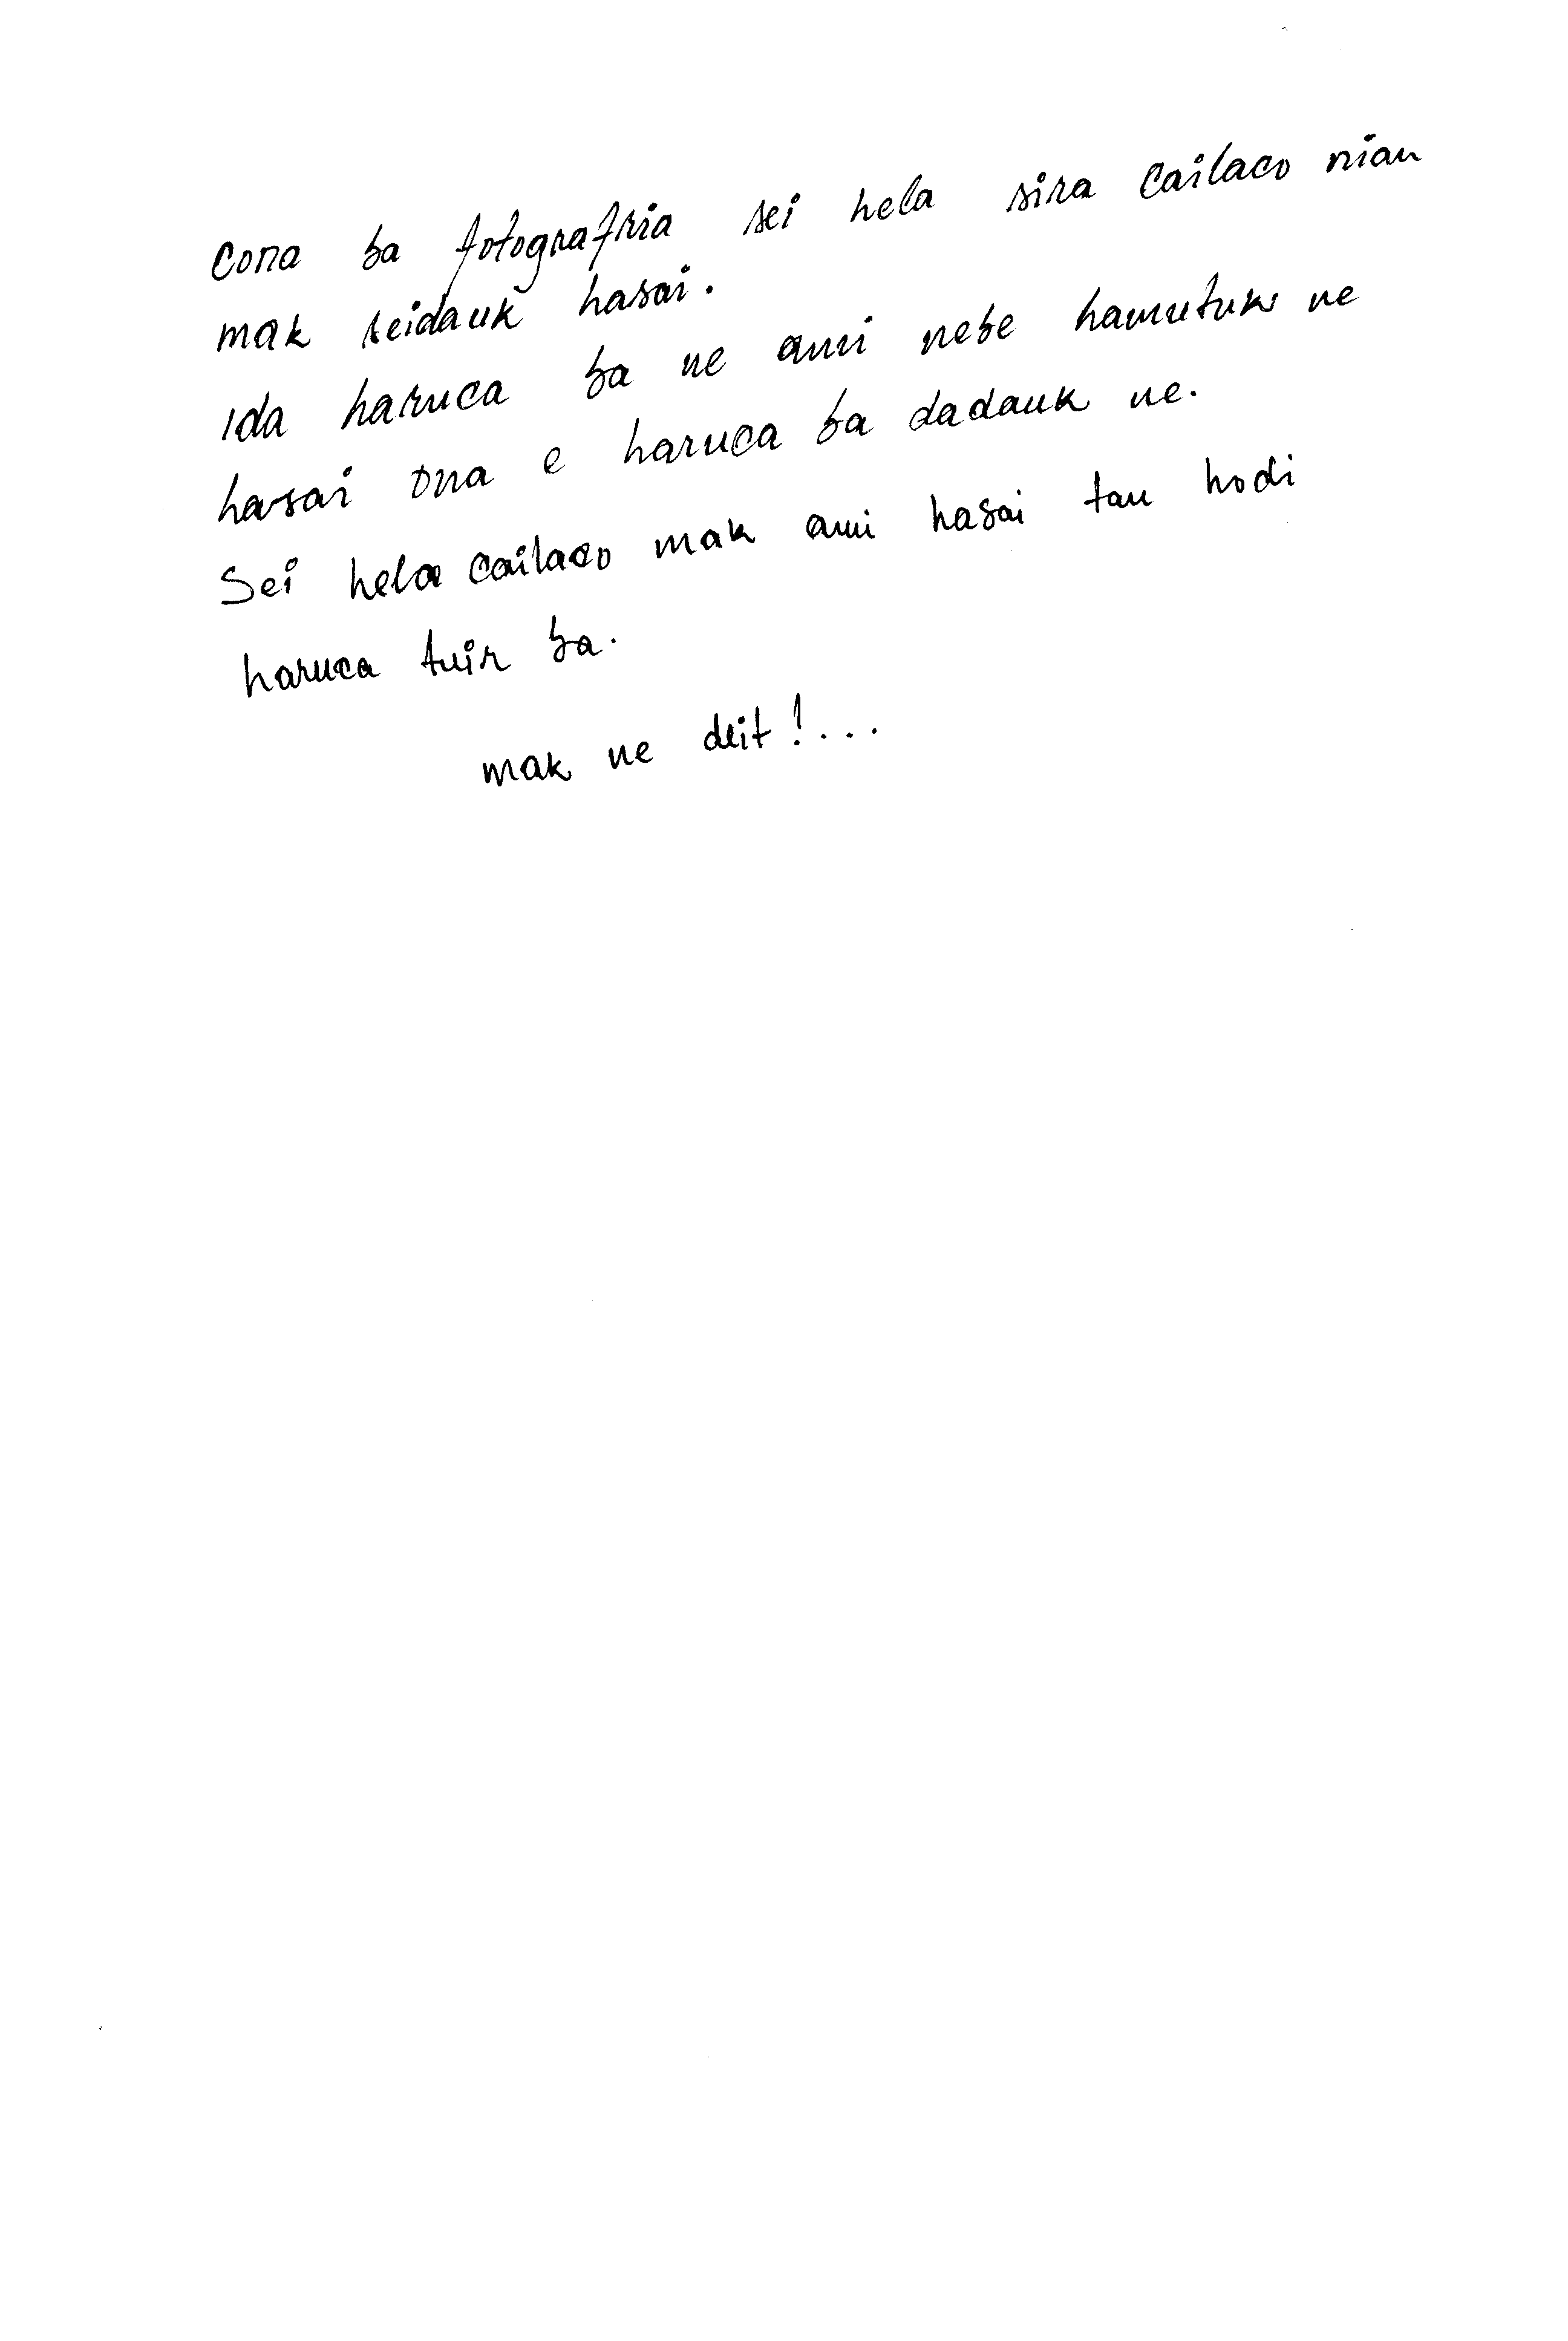 Cona ba fotografria sei hela sira Cailaco nian
mak seidauk hasai.
Ida haruca ba ne ami nebe hamutuk ne
hasai ona e haruca ba dadauk ne.
Sei hela Cailaco mak ami hasai tau hodi
haruca tuir ba.
mak ne deit!...